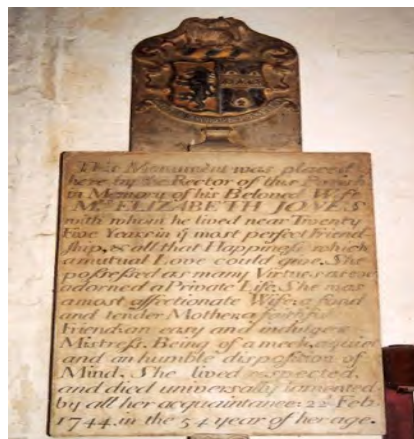 This Monument was placed
here by the Rector of this Parish
in Memory of his Beloved Wife
Mrs ELIZABETH JONES
with whom he lived near Twenty
Five Years in ye most perfect Friend
ship, & all that Happiness which
a mutual Love could give. She
possessed as many Virtues as ever
adorned a Private Life. She was
a most affectionate Wife, a fond
and tender Mother, a faithful
Friend, an easy and indulgent
Mistress. Being of a meek, quiet
and an humble disposition of
Mind. She lived respected,
and died universally lamented
by all her acquaintance: 22d Feb.
1744. in the 54 year of her age.